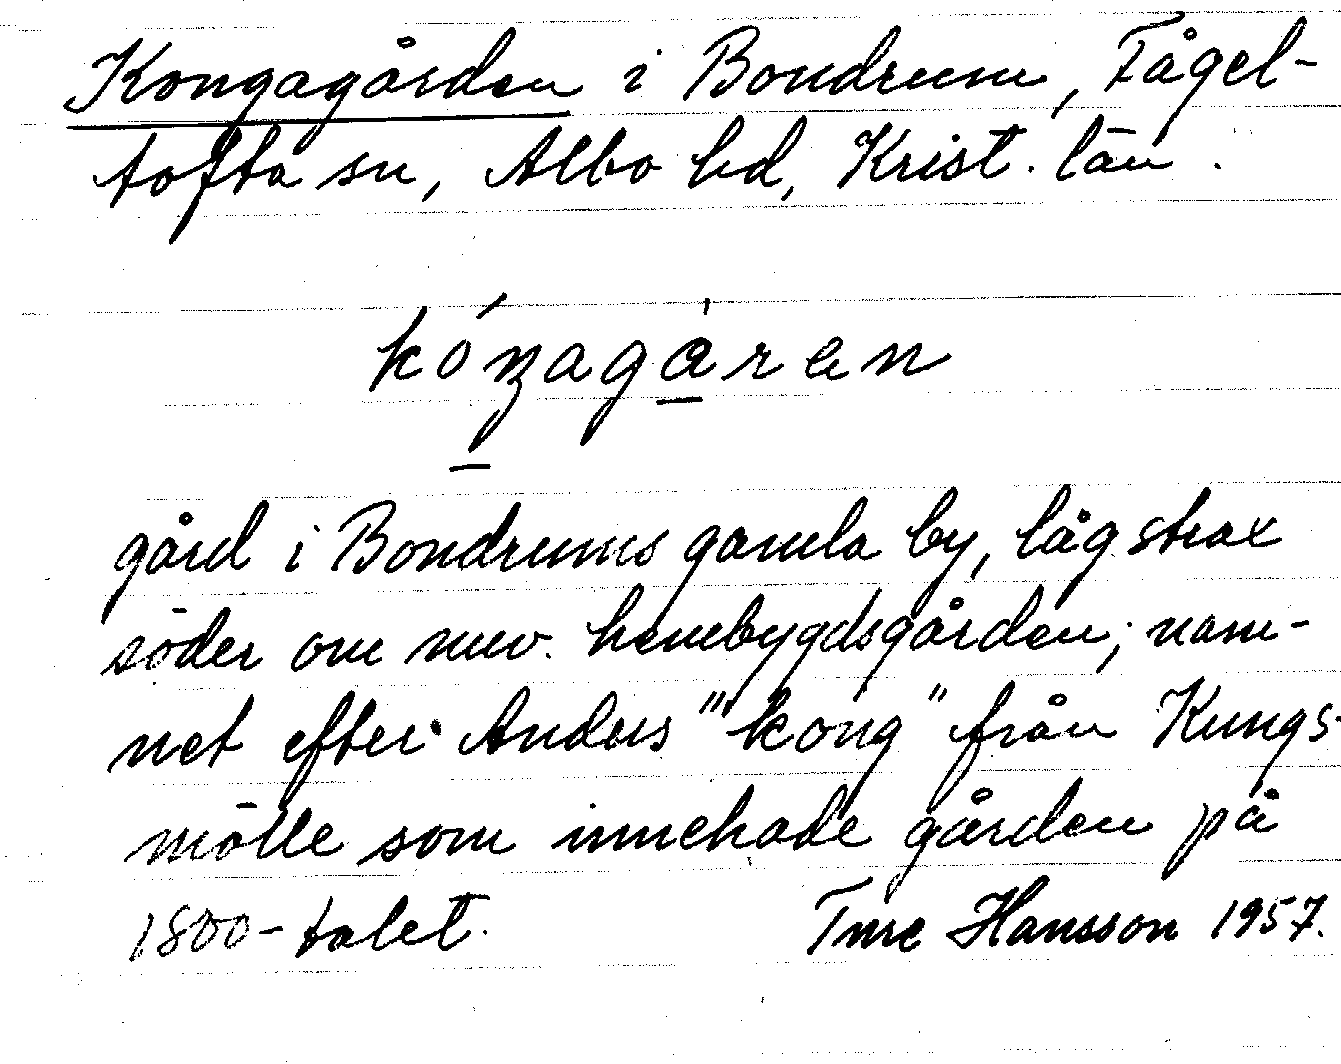 Kongagården i Bondrum, Fågel-
tofta sn, Albo hd, Krist. län.
kóŋagå̱ren
gård i Bondrums gamla by, låg strax
söder om nuv. hembygdsgården; nam-
net efter Anders "kong" från Kungs-
mölle som innehade gården på
1800-talet. Ture Hansson 1957.